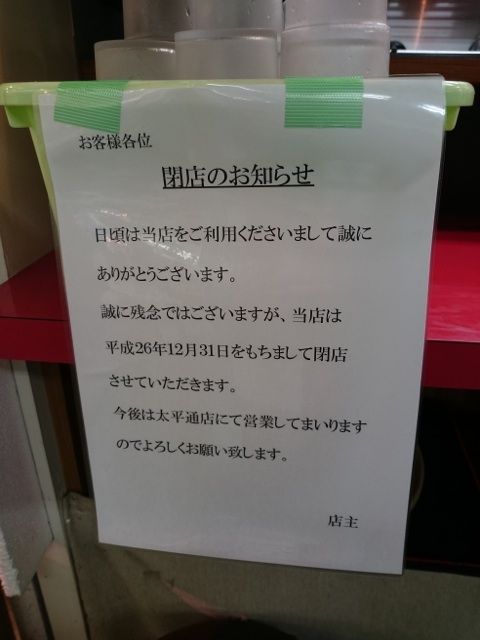 お客様各位
閉店のお知らせ
日頃は当店をご利用くださいまして誠に
ありがとうございます。
誠に残念ではございますが、当店は
平成26年12月31日をもちまして閉店
させていただきます。
今後は太平通店にて営業してまいります
のでよろしくお願い致します。
店主